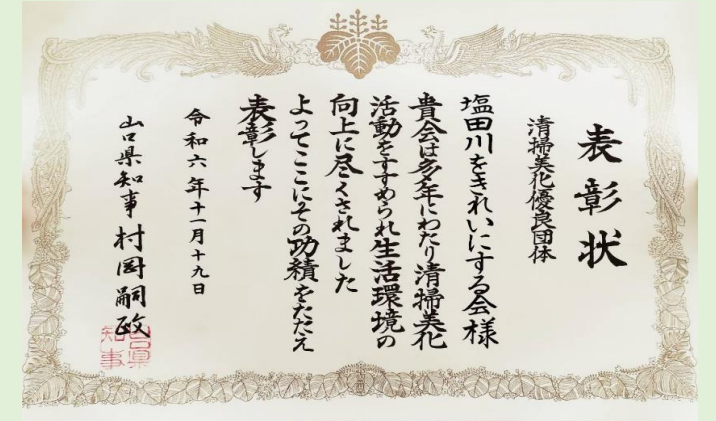 表彰状
清掃美化優良団体
塩田川をきれいにする会様
貴会は多年にわたり清掃美化
活動をすすめられ生活環境の
向上に尽くされました
よってここにその功績をたたえ
表彰します
令和六年十一月十九日
山口県知事 村岡嗣政
山口県
知事